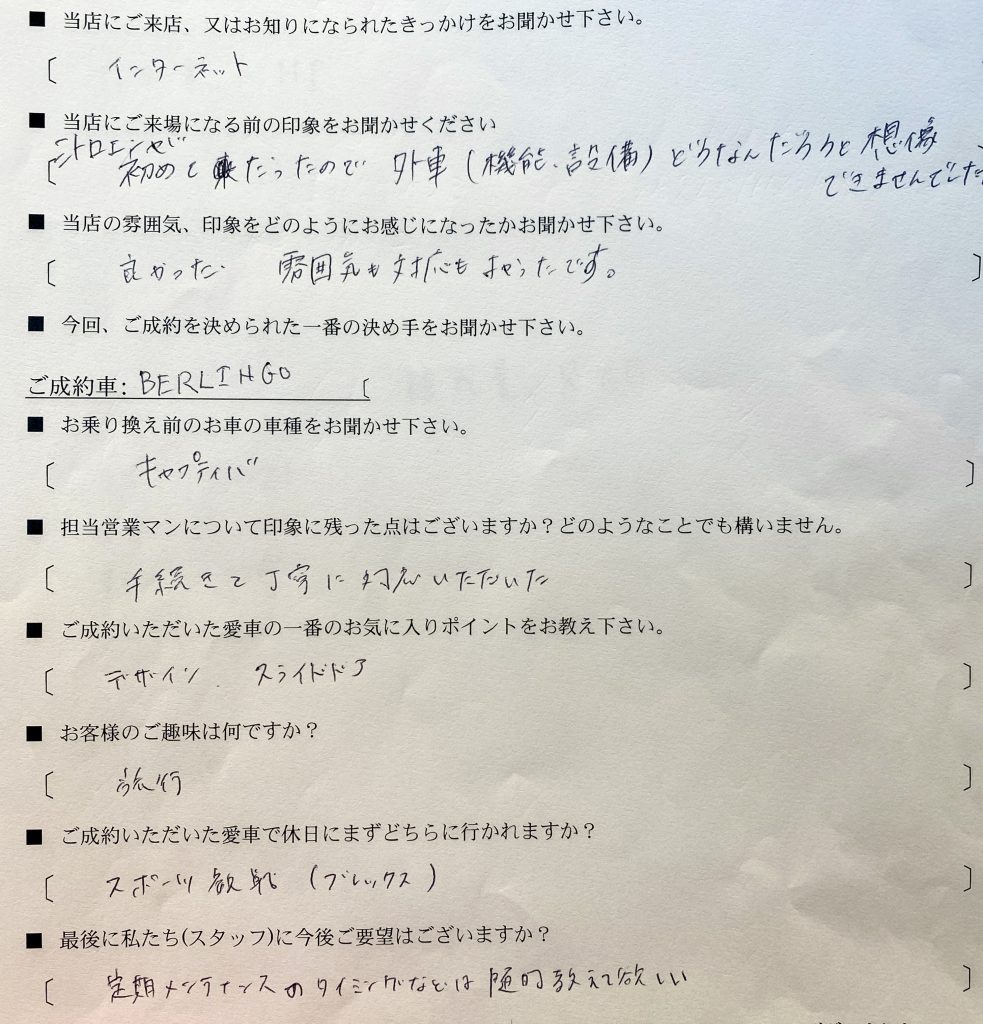 ■ 当店にご来店、又はお知りになられたきっかけをお聞かせ下さい。
〔 インターネット
■ 当店にご来場になる前の印象をお聞かせください
シトロエンが
〔 初めて だったので 外車(機能、設備)どうなんだろうと想像 〕
できませんでした
■ 当店の雰囲気、印象をどのようにお感じになったかお聞かせ下さい。
〔 良かった. 雰囲気も対応もよかったです。 〕
■ 今回、ご成約を決められた一番の決め手をお聞かせ下さい。
ご成約車: BERLINGO 〔
■ お乗り換え前のお車の車種をお聞かせ下さい。
〔 キャプティバ 〕
■ 担当営業マンについて印象に残った点はございますか？どのようなことでも構いません。
〔 手続きを丁寧に対応いただいた 〕
■ ご成約いただいた愛車の一番のお気に入りポイントをお教え下さい。
〔 デザイン. スライドドア 〕
■ お客様のご趣味は何ですか？
〔 旅行 〕
■ ご成約いただいた愛車で休日にまずどちらに行かれますか？
〔 スポーツ観戦 (ブレックス) 〕
■ 最後に私たち(スタッフ)に今後ご要望はございますか？
〔 定期メンテナンスのタイミングなどは随時教えて欲しい 〕